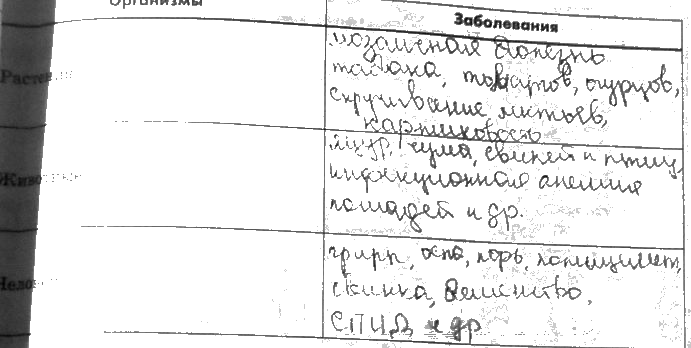 Организмы
Заболевания
мозаичная болезнь
Растения
табака, томатов, огурцов,
скручивание листьев,
карликовость
ящур, чума, свиней и птиц,
Животные
инфекционная анемия
лошадей и др.
грипп, оспа, корь, полиомиелит,
Человек
свинка, бешенство,
СПИД и др